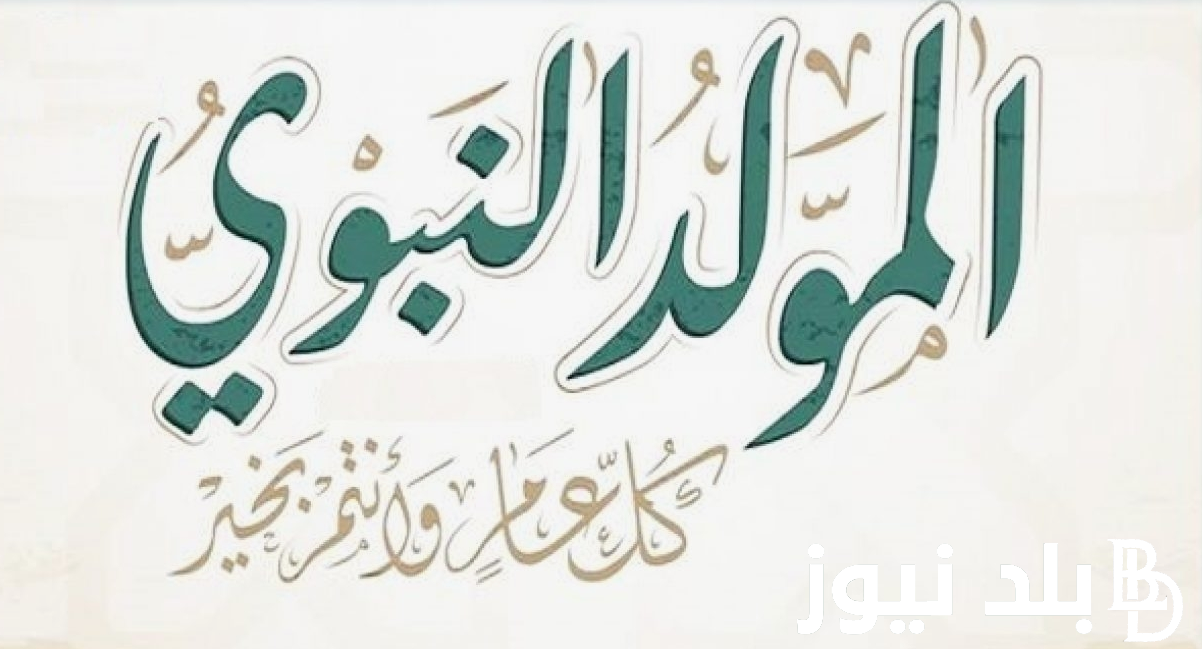 المولد النبوي
كل عام وأنتم بخير
بلد نيوز BLD